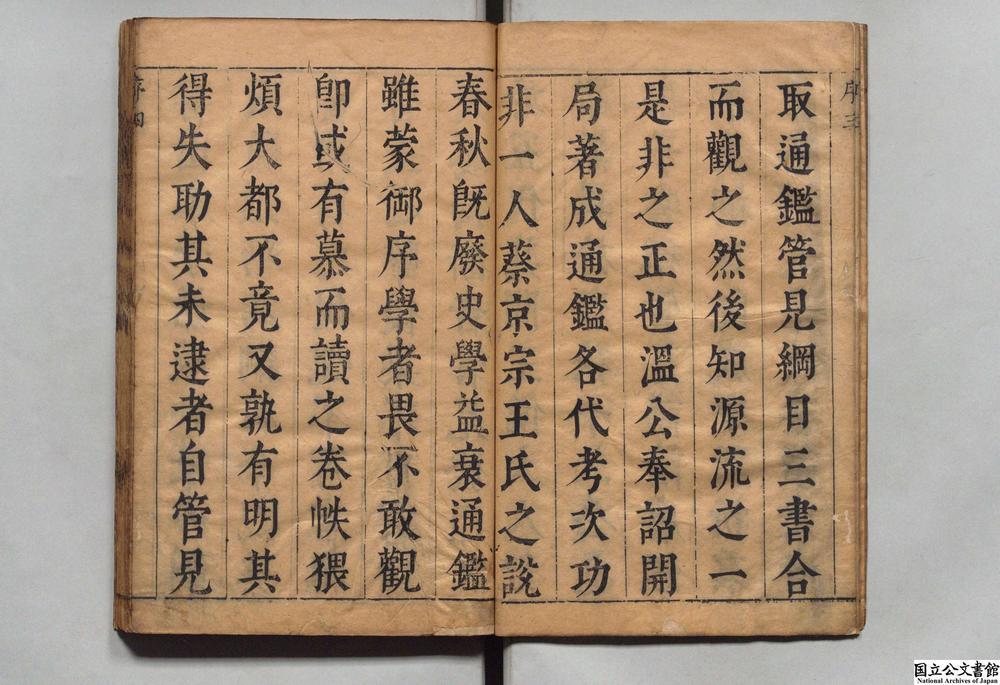 序三
取通鑑管見綱目三書合
而觀之然後知源流之一
是非之正也溫公奉詔開
局著成通鑑各代考次功
非一人蔡京宗王氏之說
春秋旣廢史學益衰通鑑
雖蒙御序學者畏不敢觀
卽或有慕而讀之卷帙猥
煩大都不竟又孰有明其
得失助其未逮者自管見
序四
国立公文書館
National Archives of Japan